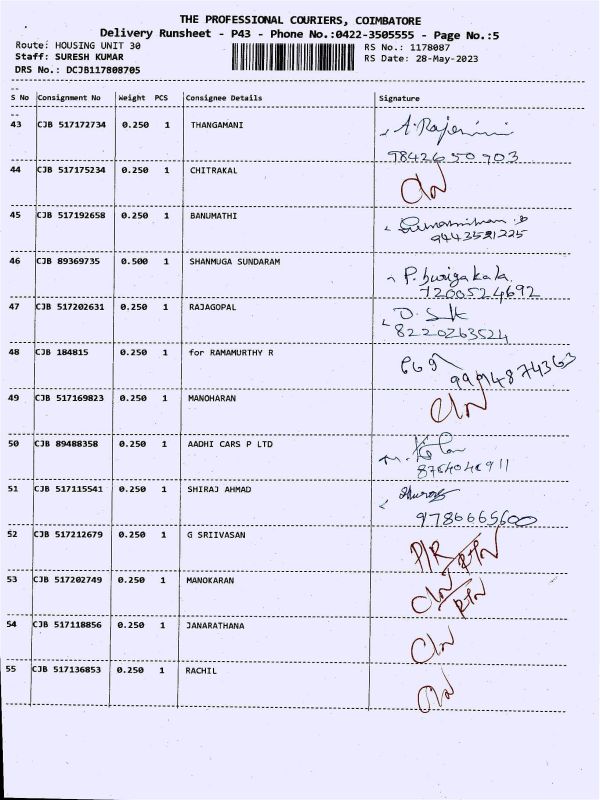 THE PROFESSIONAL COURIERS, COIMBATORE
Delivery Runsheet - P43 - Phone No.:0422-3505555 - Page No.:5
Route: HOUSING UNIT 30 RS No.: 1178087
Staff: SURESH KUMAR RS Date: 28-May-2023
DRS No.: DCJB117808705
S No Consignment No Weight PCS Consignee Details Signature
43 CJB 517172734 0.250 1 THANGAMANI
9842650703
44 CJB 517175234 0.250 1 CHITRAKAL
45 CJB 517192658 0.250 1 BANUMATHI
46 CJB 89369735 0.500 1 SHANMUGA SUNDARAM
7200524692
47 CJB 517202631 0.250 1 RAJAGOPAL
8220263524
48 CJB 184815 0.250 1 for RAMAMURTHY R
49 CJB 517169823 0.250 1 MANOHARAN
50 CJB 89488358 0.250 1 AADHI CARS P LTD
51 CJB 517115541 0.250 1 SHIRAJ AHMAD
9786665600
52 CJB 517212679 0.250 1 G SRIIVASAN
53 CJB 517202749 0.250 1 MANOKARAN
54 CJB 517118856 0.250 1 JANARATHANA
55 CJB 517136853 0.250 1 RACHIL